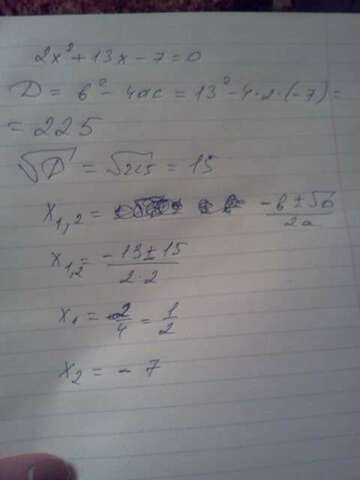 2x² + 13x - 7 = 0
D = b² - 4ac = 13² - 4·2·(-7) =
= 225
√D = √225 = 15
x₁,₂ = (-b ± √D)/2a
x₁,₂ = (-13 ± 15)/(2·2)
x₁ = 2/4 = 1/2
x₂ = - 7